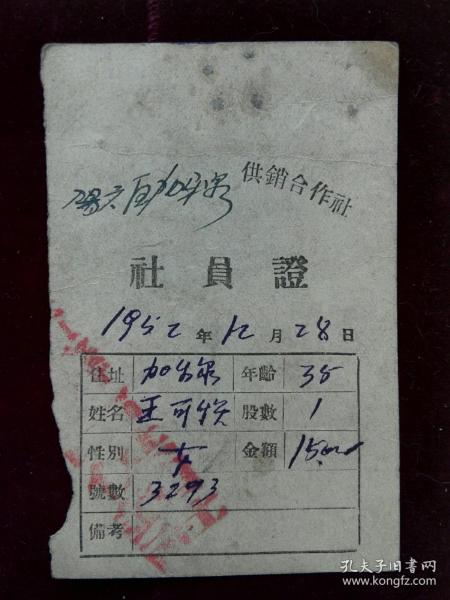 供銷合作社
社員證
1952年12月28日
住址 年齡 38
姓名 王可 股數 1
性別 女 金額
號數 3293
備考
孔夫子旧书网
www.kongfz.com